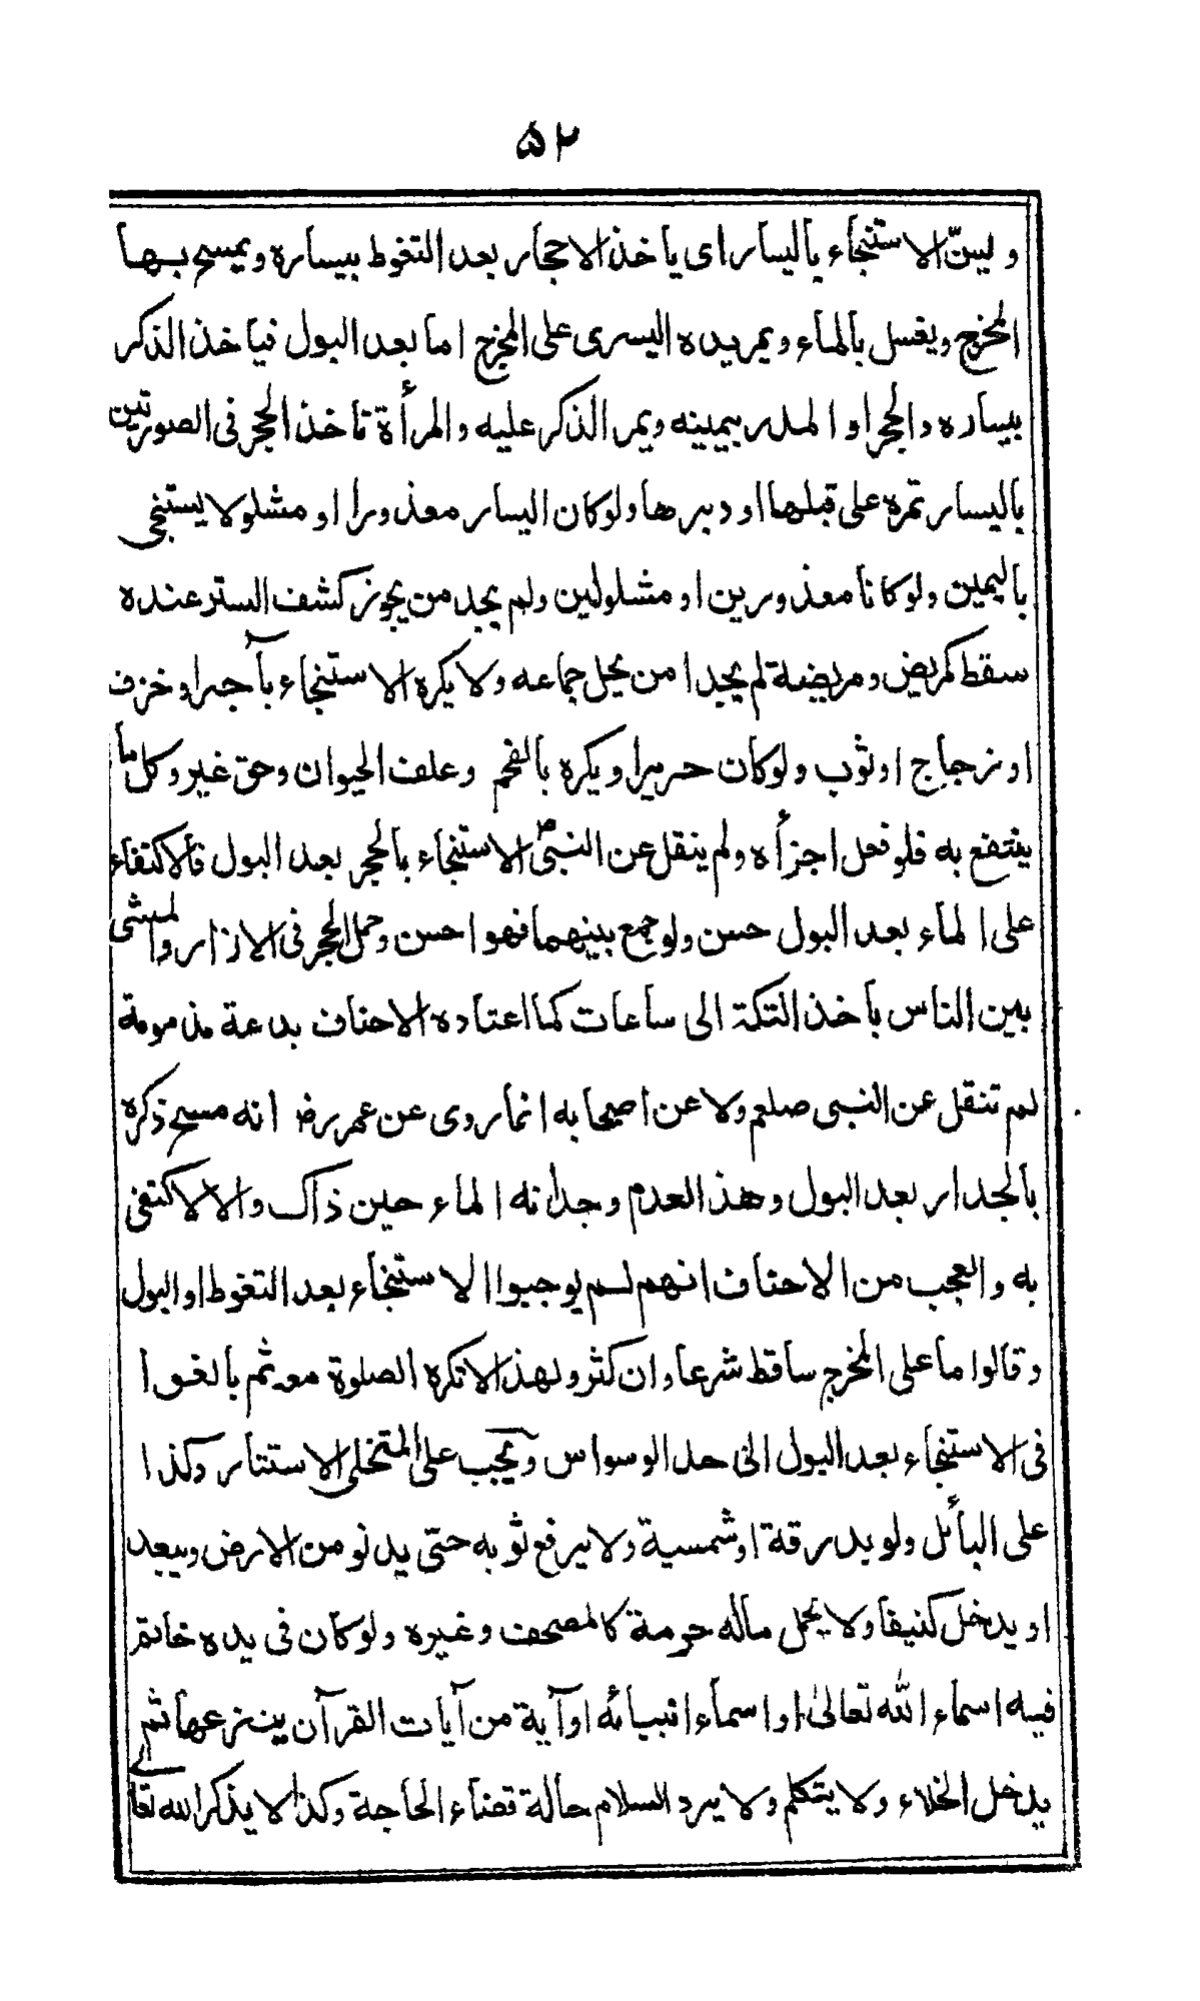 ۵۲
ويسنّ الاستنجاء باليسار اى ياخذ الاحجار بعد التغوط بيساره ويمسح بها
المخرج ويغسل بالماء ويمر يده اليسرى على المخرج اما بعد البول فياخذ الذكر
بيساره والحجر او المدر بيمينه ويمر الذكر عليه والمرأة تاخذ الحجر فى الصورتين
باليسار تمره على قبلها او دبرها ولو كان اليسار معذورا او مشلولا يستنجى
باليمين ولو كانا معذورين او مشلولين ولم يجد من يجوز كشف الستر عنده
سقط كمريض ومريضة لم يجدا من يحل جماعه ولا يكره الاستنجاء بآجر او خزف
او زجاج او ثوب ولو كان حريرا ويكره بالفحم وعلف الحيوان وحق غير وكل ما
ينتفع به فلو فعل اجزأه ولم ينقل عن النبىؐ الاستنجاء بالحجر بعد البول فالاكتفاء
على الماء بعد البول حسن ولو جمع بينهما فهو احسن وحمل الحجر فى الازار والمشى
بين الناس باخذ التكة الى ساعات كما اعتاده الاحناف بدعة مذمومة
لم تنقل عن النبى صلعم ولا عن اصحابه انما روى عن عمر رض انه مسح ذكره
بالجدار بعد البول وهذا لعدم وجدانه الماء حين ذاك والا لاكتفى
به والعجب من الاحناف انهم لم يوجبوا الاستنجاء بعد التغوط او البول
وقالوا ما على المخرج ساقط شرعا وان كثر ولهذا لا تكره الصلوة معه ثم بالغوا
فى الاستنجاء بعد البول الى حد الوسواس ويجب على المتخلى الاستتار وكذا
على البائل ولو بدرقة او شمسية ولا يرفع ثوبه حتى يدنو من الارض ويبعد
او يدخل كنيفا ولا يحمل ماله حرمة كالمصحف وغيره ولو كان فى يده خاتم
فيه اسماء الله تعالىٰ او اسماء انبيائه او آية من آيات القرآن ينزعها ثم
يدخل الخلاء ولا يتكلم ولا يرد السلام حالة قضاء الحاجة وكذا لا يذكر الله تعالى